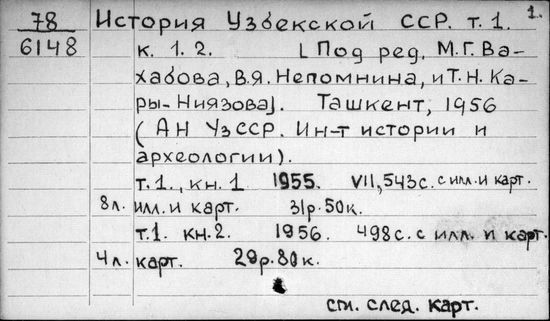 78 История Узбекской ССР. т. 1. 1.
6148 к. 1. 2. [Под ред. М.Г. Ва-
хабова, В.Я. Непомнина, и Т.Н. Ка-
ры-Ниязова]. Ташкент, 1956
(АН УзССР. Ин-т истории и
археологии).
т. 1., кн. 1 1955. VII, 543 с. с илл. и карт.
8 л. илл. и карт. 31 р. 50 к.
т. 1. кн. 2. 1956. 498 с. с илл. и карт.
4 л. карт. 29 р. 80 к.
см. след. карт.